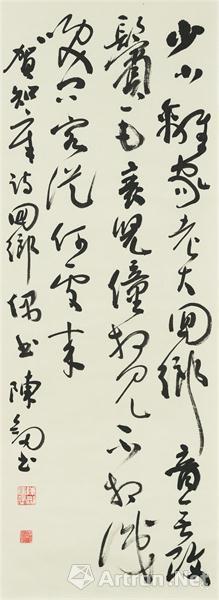 少小離家老大回鄉音无改
鬢毛衰兒僮相見不相識
笑問客從何處來
賀知章詩回鄉偶書 陳書
Artron.Net